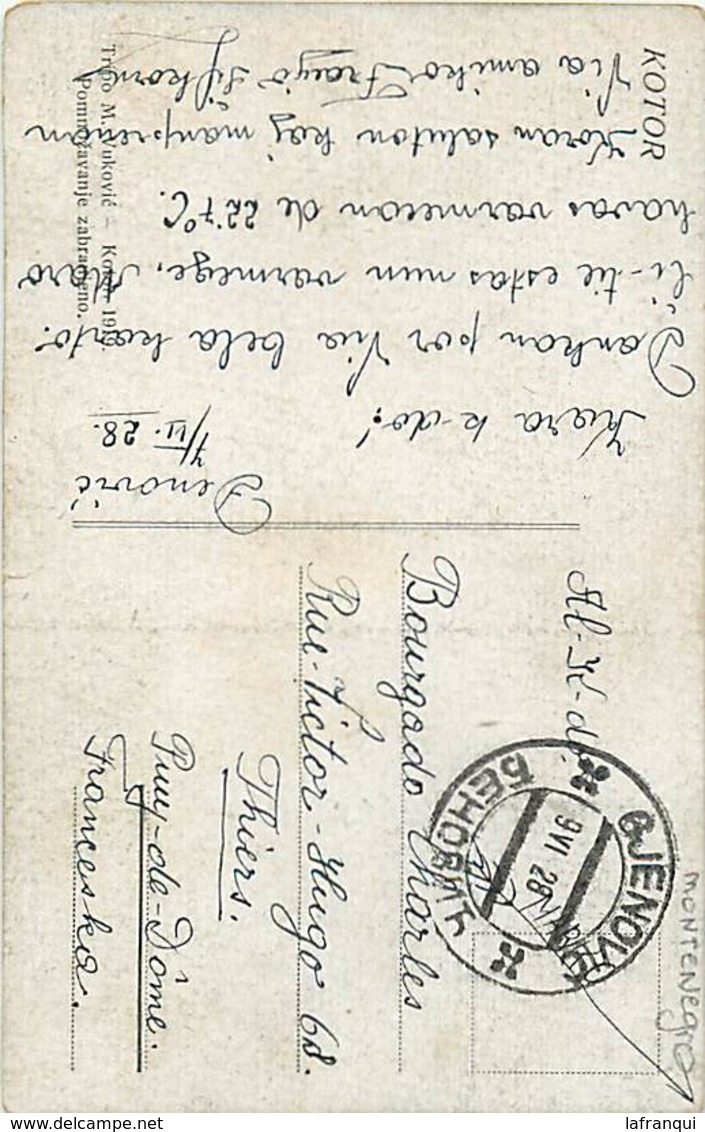 KOTOR
Tripo M. Vuković — Kotor
Pomnožavanje zabranjeno.
Đenović
7/VI. 28.
Kara k-do!
Dankon por Via bela karto.
Ĉi-tie estas nun varmege, Maro
havas varmecon de 22.7°C.
Koran saluton kaj manpremon
Via amiko
Al-K-do.
Bourgado Charles
Rue-Victor-Hugo 68.
Thiers.
Puy-de-Dôme.
Franceska.
GJENOVIĆ
ЂЕНОВИЋ
9 VI 28
MONTENEGRO
lafranqui